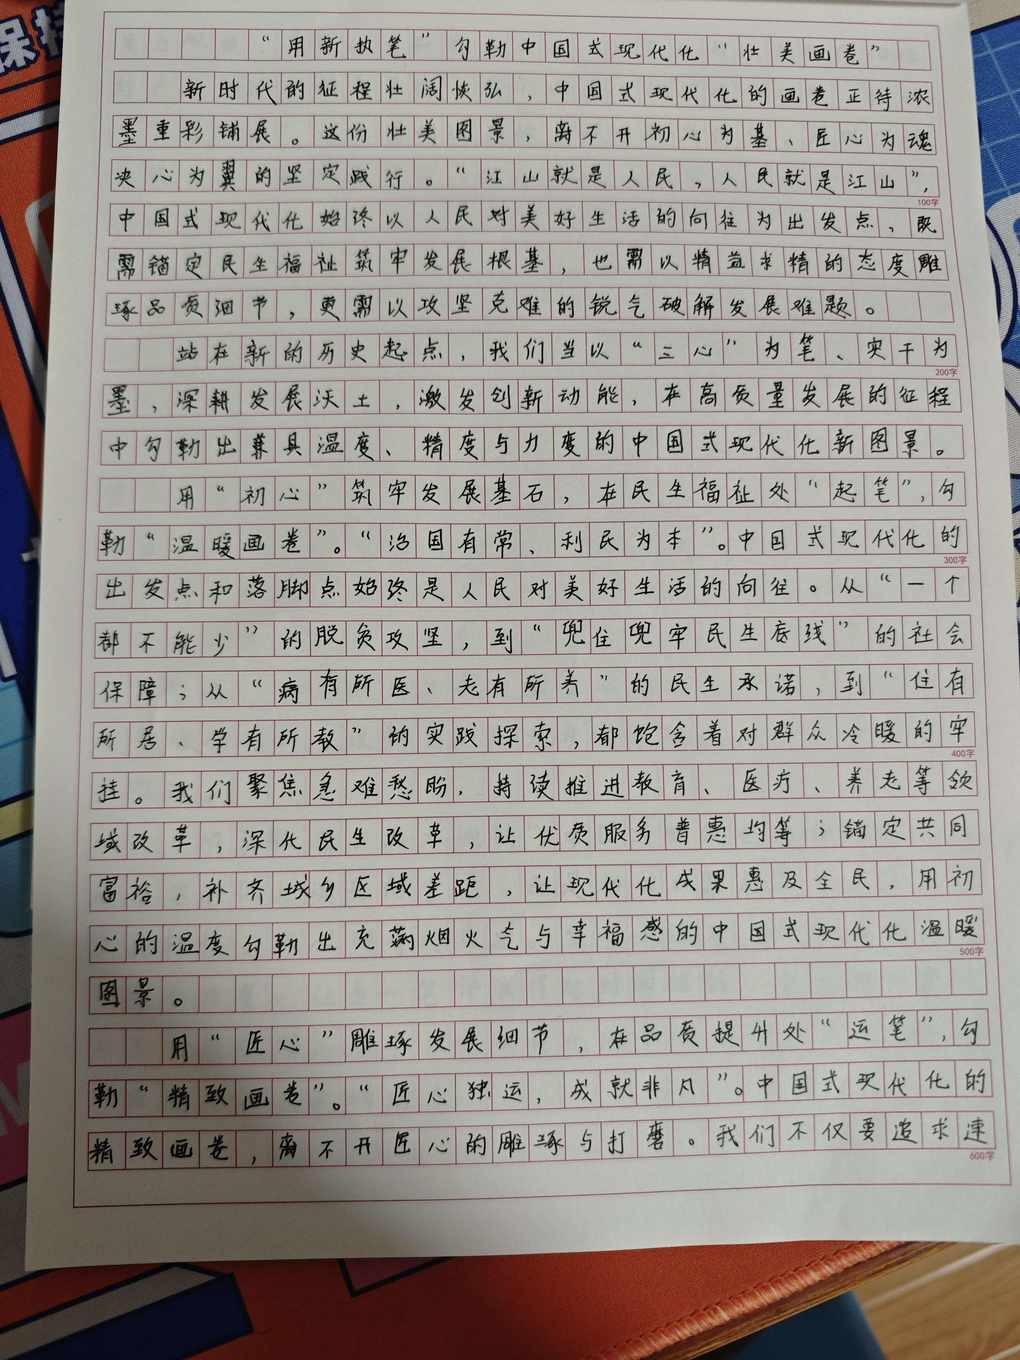 “用新执笔”勾勒中国式现代化“壮美画卷”
新时代的征程壮阔恢弘，中国式现代化的画卷正待浓
墨重彩铺展。这份壮美图景，离不开初心为基、匠心为魂
决心为翼的坚定践行。“江山就是人民，人民就是江山”，
100字
中国式现代化始终以人民对美好生活的向往为出发点，既
需锚定民生福祉筑牢发展根基，也需以精益求精的态度雕
琢品质细节，更需以攻坚克难的锐气破解发展难题。
站在新的历史起点，我们当以“三心”为笔、实干为
200字
墨，深耕发展沃土，激发创新动能，在高质量发展的征程
中勾勒出兼具温度、精度与力度的中国式现代化新图景。
用“初心”筑牢发展基石，在民生福祉处“起笔”，勾
勒“温暖画卷”。“治国有常、利民为本”。中国式现代化的
300字
出发点和落脚点始终是人民对美好生活的向往。从“一个
都不能少”的脱贫攻坚，到“兜住兜牢民生底线”的社会
保障；从“病有所医、老有所养”的民生承诺，到“住有
所居、学有所教”的实践探索，都饱含着对群众冷暖的牢
400字
挂。我们聚焦急难愁盼，持续推进教育、医疗、养老等领
域改革，深化民生改革，让优质服务普惠均等；锚定共同
富裕，补齐城乡区域差距，让现代化成果惠及全民，用初
心的温度勾勒出充满烟火气与幸福感的中国式现代化温暖
500字
图景。
用“匠心”雕琢发展细节，在品质提升处“运笔”，勾
勒“精致画卷”。“匠心独运，成就非凡”。中国式现代化的
精致画卷，离不开匠心的雕琢与打磨。我们不仅要追求速
600字